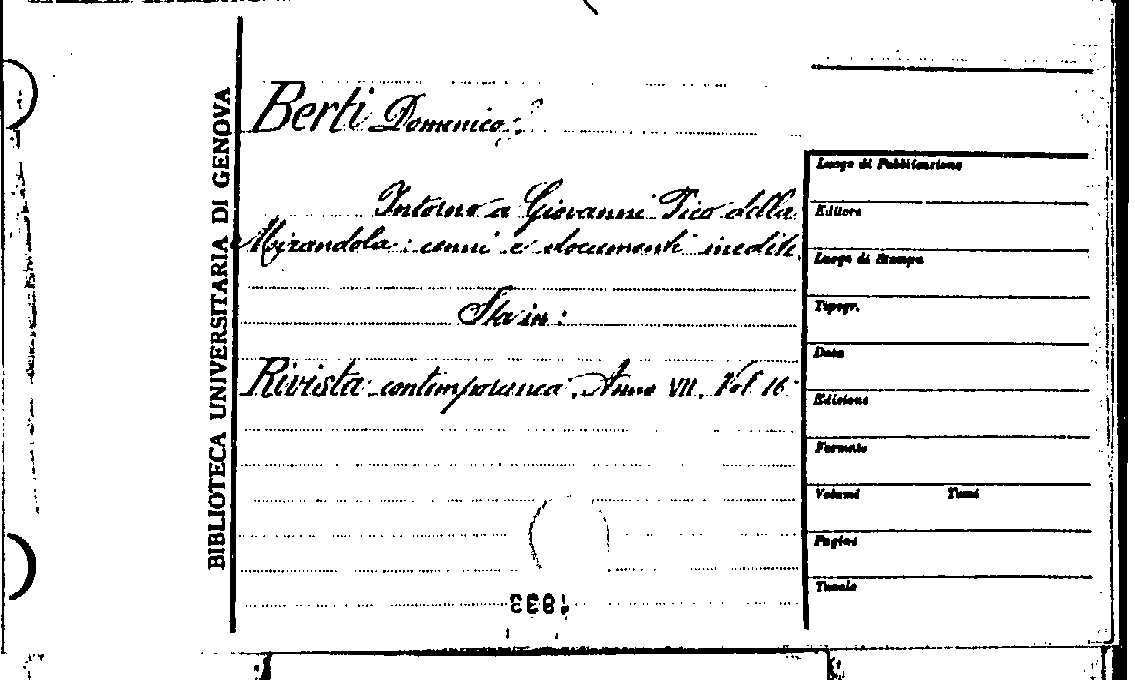 BIBLIOTECA UNIVERSITARIA DI GENOVA
Berti Domenico.
Intorno a Giovanni Pico della
Mirandola: cenni e documenti inediti.
Sta in:
Rivista contemporanea. Anno VII. Vol 16
Luogo di Pubblicazione
Editore
Luogo di Stampa
Tipogr.
Data
Edizione
Formato
Volumi Tomi
Pagine
Tavole